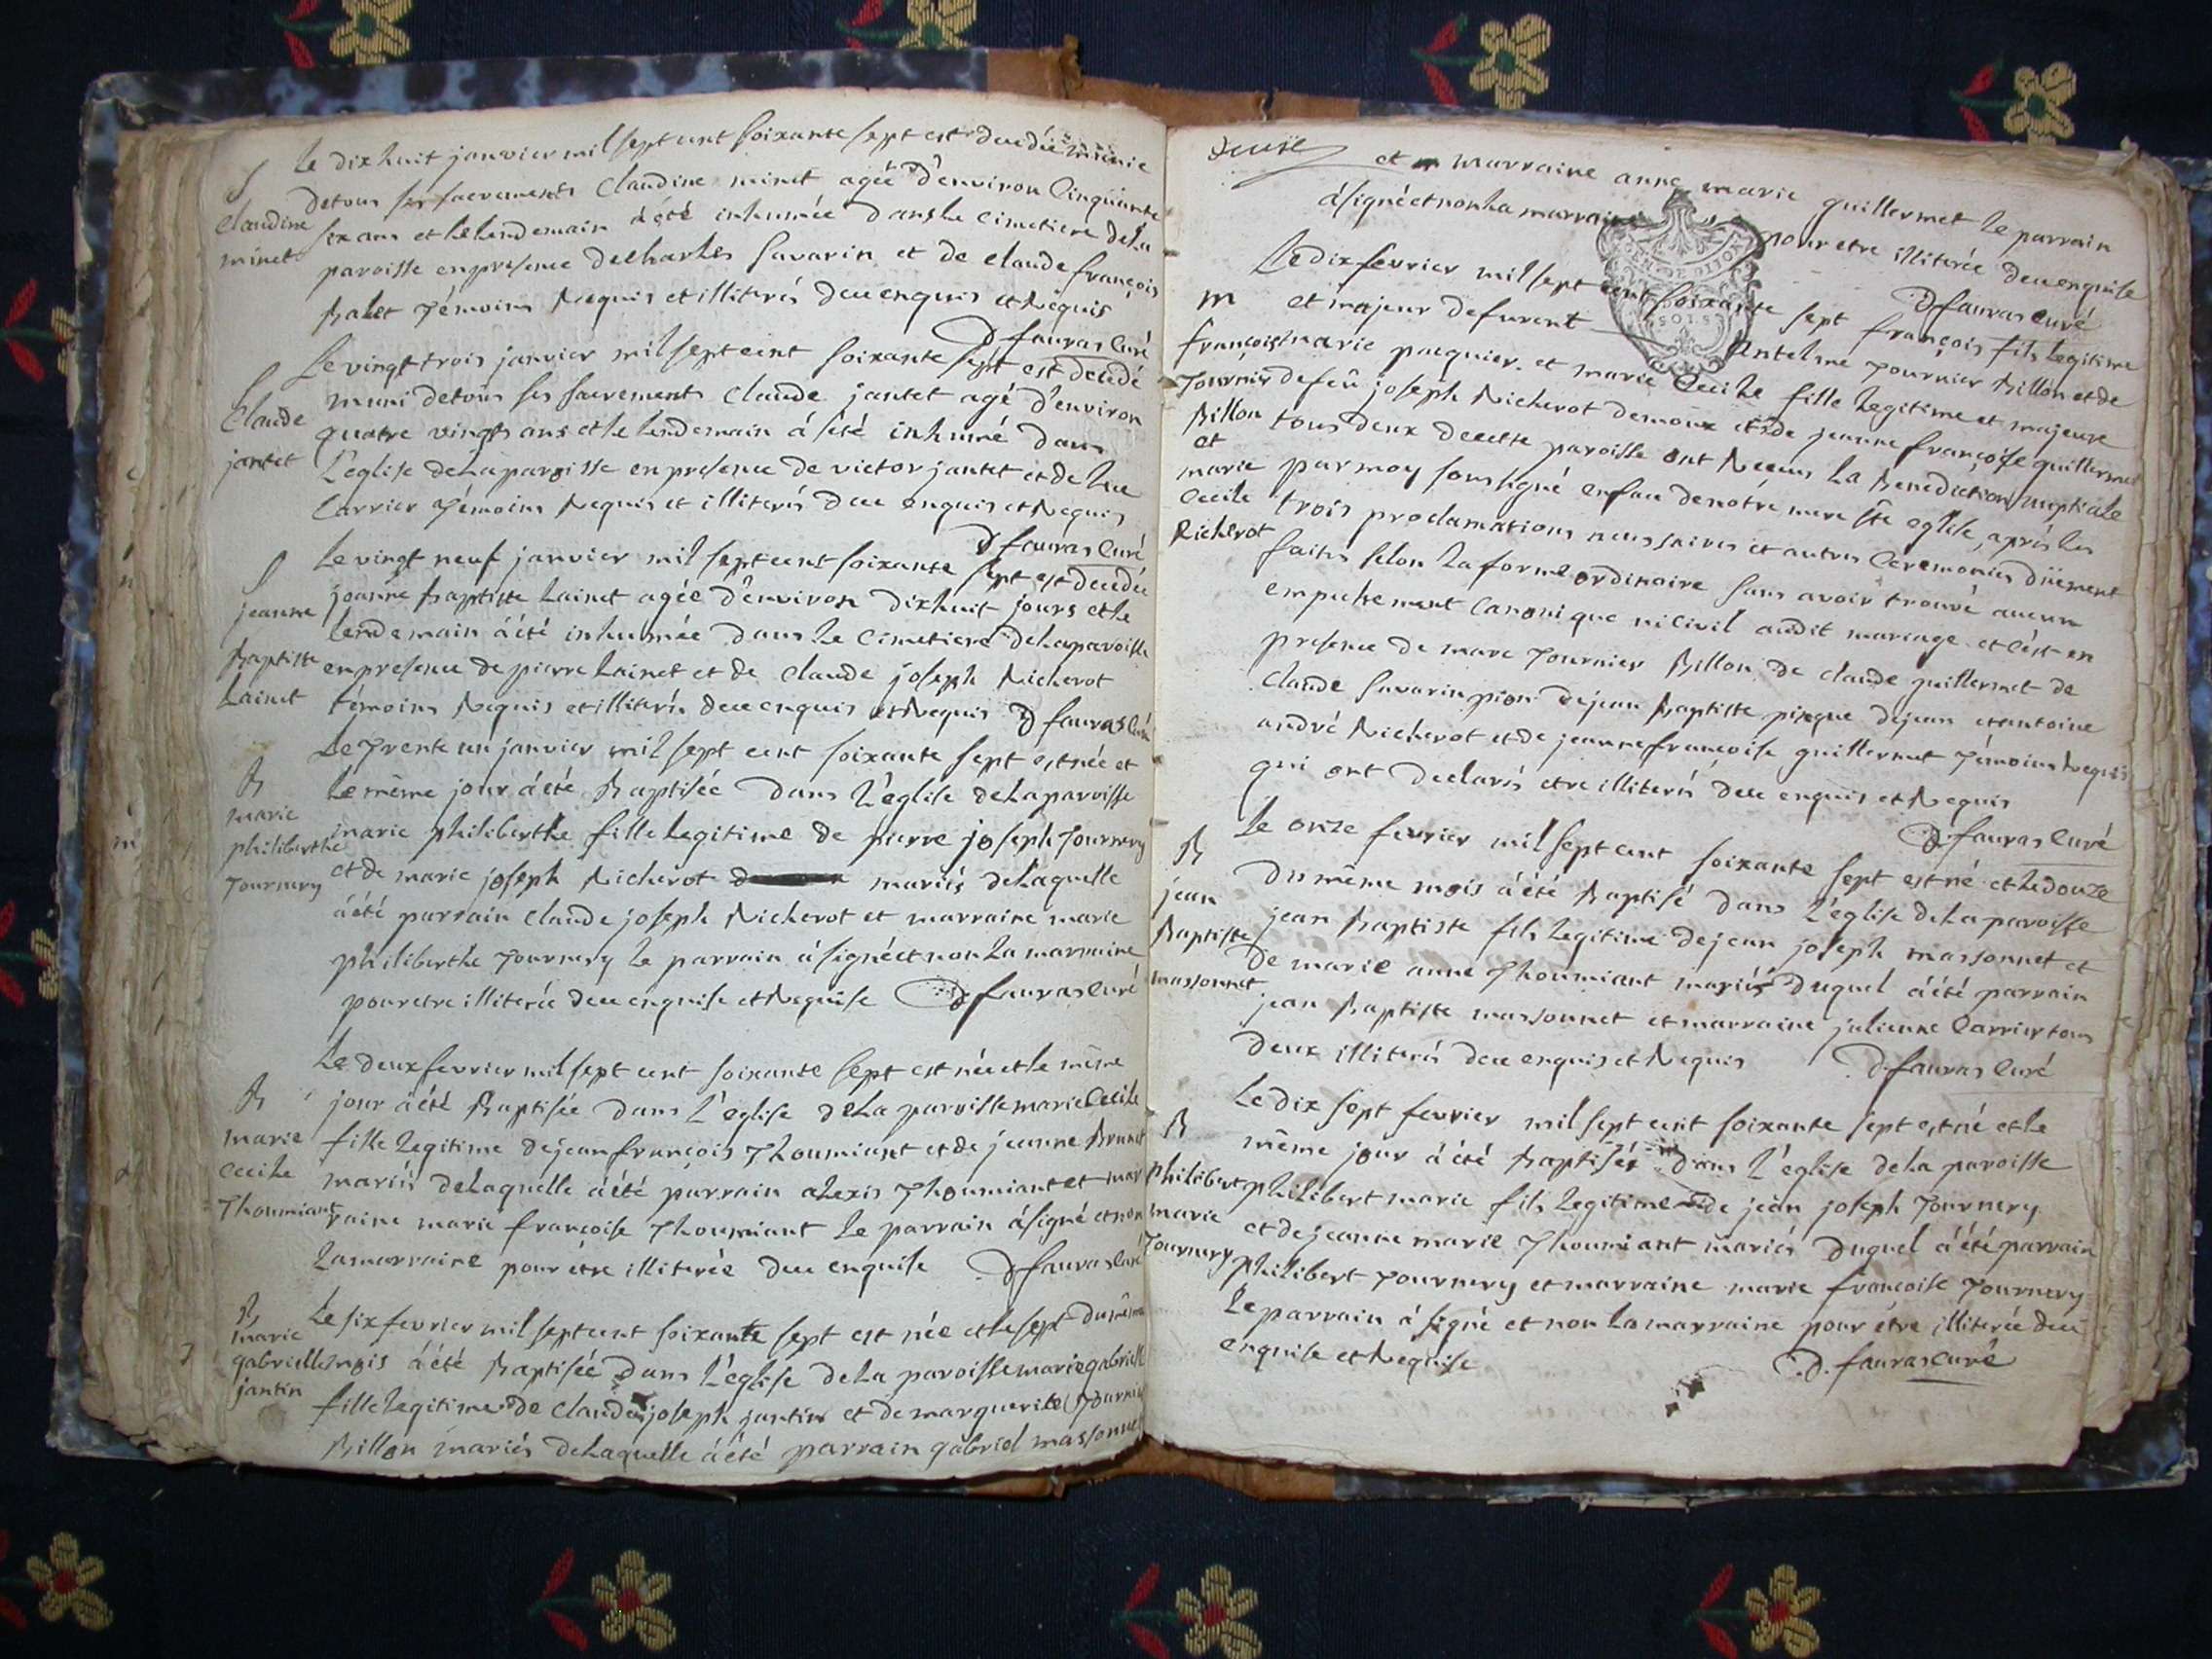 Le dix huit janvier mil sept cent soixante sept est decedée munie
S
detous ses sacrements Claudine minet agée d'environ Cinquante
Claudine
six ans et le lendemain a été inhumée dans le cimetiere de la
minet
paroisse en presence de Charles Savarin et de claude françois
Balet témoins Requis et illiterés dece enquis et Requis
D fauras Curé
Le vingt trois janvier mil sept cent soixante sept est decedé
S
muni detous ses sacrements Claude jantet agé d'environ
Claude
quatre vingts ans et le lendemain á été inhumé dans
jantet
L'eglise de La paroisse en presence de victor jantet et de luc
Carrier témoins Requis et illiterés dece enquis et Requis
D fauras Curé
Le vingt neuf janvier mil sept cent soixante sept est decedée
S
jeanne Baptiste Lainet agée d'environ dixhuit jours et le
jeanne
lendemain áété inhumée dans Le Cimetiere de La paroisse
Baptiste
en presence de pierre Lainet et de Claude joseph Richerot
Lainet
témoins Requis et illiterés dece enquis et Requis D fauras Curé
Le trente un janvier mil sept cent soixante sept est née et
B
Le même jour áété Baptisée dans L'eglise de La paroisse
marie
marie philiberthe fille legitime de pierre joseph Tournery
philiberthe
et de marie joseph Richerot mariés de Laquelle
Tournery
áété parrain Claude joseph Richerot et marraine marie
philiberthe Tournery Le parrain á signé et non La marraine
pour etre illiterée dece enquise et Requise D fauras Curé
Le deux fevrier mil sept cent soixante sept est née et le même
B
jour áété Baptisée dans L'eglise de La paroisse marie Cecile
marie
fille Legitime de jean françois Thoumiant et de jeanne Brunet
Cecile
mariés de Laquelle áété parrain alexis Thoumiant et mar
Thoumiant
raine marie françoise Thoumiant Le parrain á signé et non
La marraine pour être illiterée dece enquise D fauras Curé
B
Le six fevrier mil sept cent soixante sept est née et le sept du même
marie
gabrielle
mois áété Baptisée dans L'eglise de La paroisse marie gabrielle
jantin
fille legitime de Claude joseph jantin et de marguerite Tournier
Billon mariés de Laquelle áété parrain gabriel massonnet
et marraine anne marie guillermet Le parrain
á signé et non La marraine pour etre illiterée dece enquise
D fauras Curé
Le dix fevrier mil sept cent soixante sept françois fils legitime
M
et majeur de furent Antelme Tournier Billon et de
françois
marie pacquier. et marie Cecile fille legitime et majeure
Tournier
de feû joseph Richerot et de jeanne françoise guillermet
Billon
tous deux decette paroisse ont Receus La Benediction nuptiale
et
marie
par moy soussigné en face de notre mere Ste eglise, aprés les
Cecile
trois proclamations necessaires et autres Ceremonies düement
Richerot
faites selon La forme ordinaire sans avoir trouvé aucun
empechement Canonique ni civil audit mariage et c'est en
presence de marc Tournier Billon de claude guillermet de
Claude Savarin pion de jean Baptiste pinque de jean et antoine
andré Richerot et de jeanne françoise guillermet témoins Requis
qui ont declarés etre illiterés dece enquis et Requis
D. fauras Curé
Le onze fevrier mil sept cent soixante sept est né et le douze
B
du même mois áété Baptisé dans L'eglise de La paroisse
jean
jean Baptiste fils legitime de jean joseph massonnet et
Baptiste
de marie anne Thoumiant mariés duquel áété parrain
massonnet
jean Baptiste massonnet et marraine julienne Carrier tous
deux illiterés dece enquis et Requis D. fauras Curé
Le dix sept fevrier mil sept cent soixante sept est né et le
B
même jour á été Baptisé dans L'eglise de La paroisse
philibert
philibert marie fils legitime de jean joseph Tournery
marie
et de jeanne marie Thoumiant mariés duquel áété parrain
Tournery
philibert Tournery et marraine marie françoise Tournery
Le parrain á signé et non La marraine pour être illiterée dece
enquise et Requise D. fauras curé